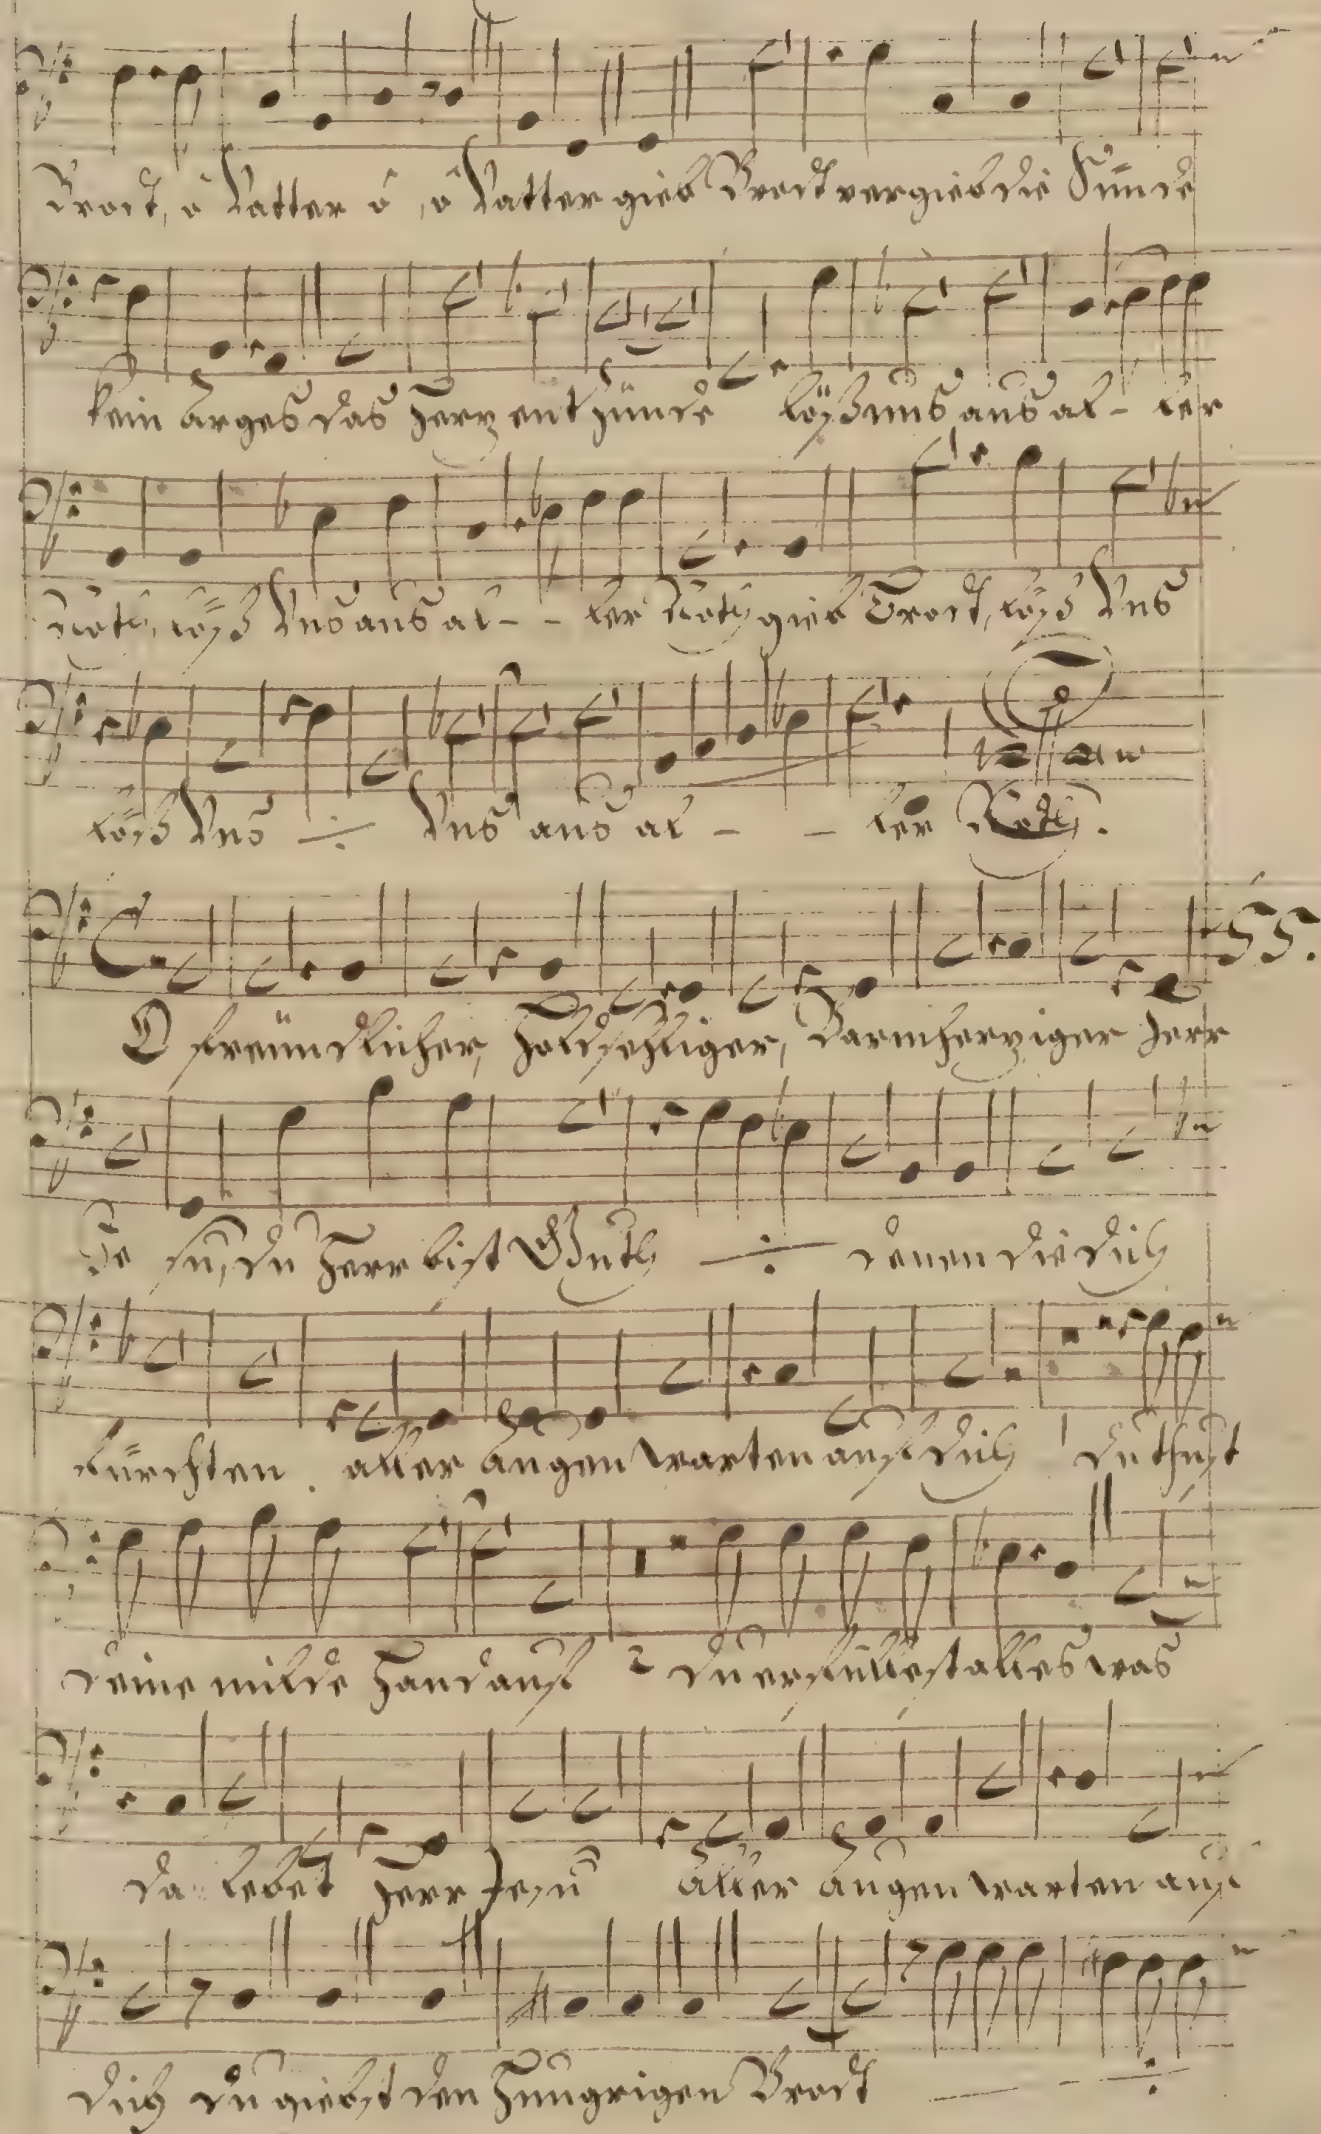 Brodt, ô Vatter ô, ô Vatter gieb Brodt vergieb die Sünde
kein arges das Hertz entzünde löß uns aus al- ler
Noth, löß Uns aus al- - ler Noth gieb Trost, löß Uns
löß Uns ÷ Uns aus al - - ler Noth.
55.
O freündlicher, Holdsehliger, Barmhertziger Herr
Je su, du Herr bist Guth ÷ denen die dich
fürchten. aller Augen warten auf dich du thust
deine milde Hand auf 2 du erfüllest alles was
da lebet Herr Jesu aller Augen warten auf
dich du giebst den Hungrigen Brodt - - ÷